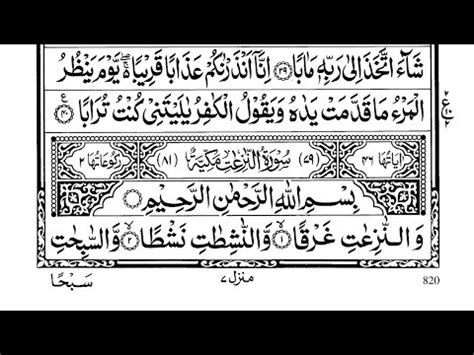 شَآءَ اتَّخَذَ اِلٰى رَبِّهٖ مَاٰبًا ﴿۳۹﴾ اِنَّاۤ اَنْذَرْنٰكُمْ عَذَابًا قَرِيْبًا ۖۚ يَّوْمَ يَنْظُرُ
الْمَرْءُ مَا قَدَّمَتْ يَدٰهُ وَيَقُوْلُ الْكٰفِرُ يٰلَيْتَنِىْ كُنْتُ تُرٰبًا ﴿۴۰﴾
اٰيَاتُهَا ۴۶ (۷۹) سُوْرَةُ النّٰزِعٰتِ مَكِّيَّةٌ (۸۱) رُكُوْعَاتُهَا ۲
بِسْمِ اللّٰهِ الرَّحْمٰنِ الرَّحِيْمِ
وَالنّٰزِعٰتِ غَرْقًا ﴿۱﴾ وَّالنّٰشِطٰتِ نَشْطًا ﴿۲﴾ وَّالسّٰبِحٰتِ
سَبْحًا
منزل ۷
820